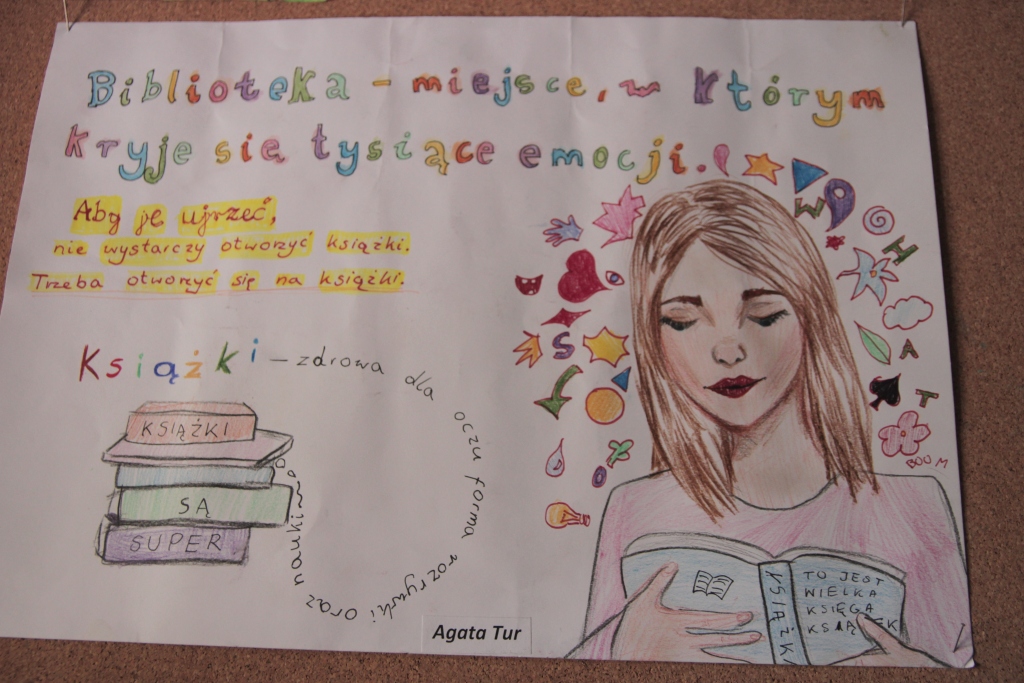 Biblioteka - miejsce, w którym
kryje się tysiące emocji.
Aby je ujrzeć,
nie wystarczy otworzyć książki.
Trzeba otworzyć się na książki.
Książki - zdrowa dla oczu forma rozrywki oraz nauki
KSIĄŻKI
SĄ
SUPER
W
H
S
A
T
BOOM
KSIĄŻK
TO JEST
WIELKA
KSIĘGA
KSIĄŻEK
Agata Tur